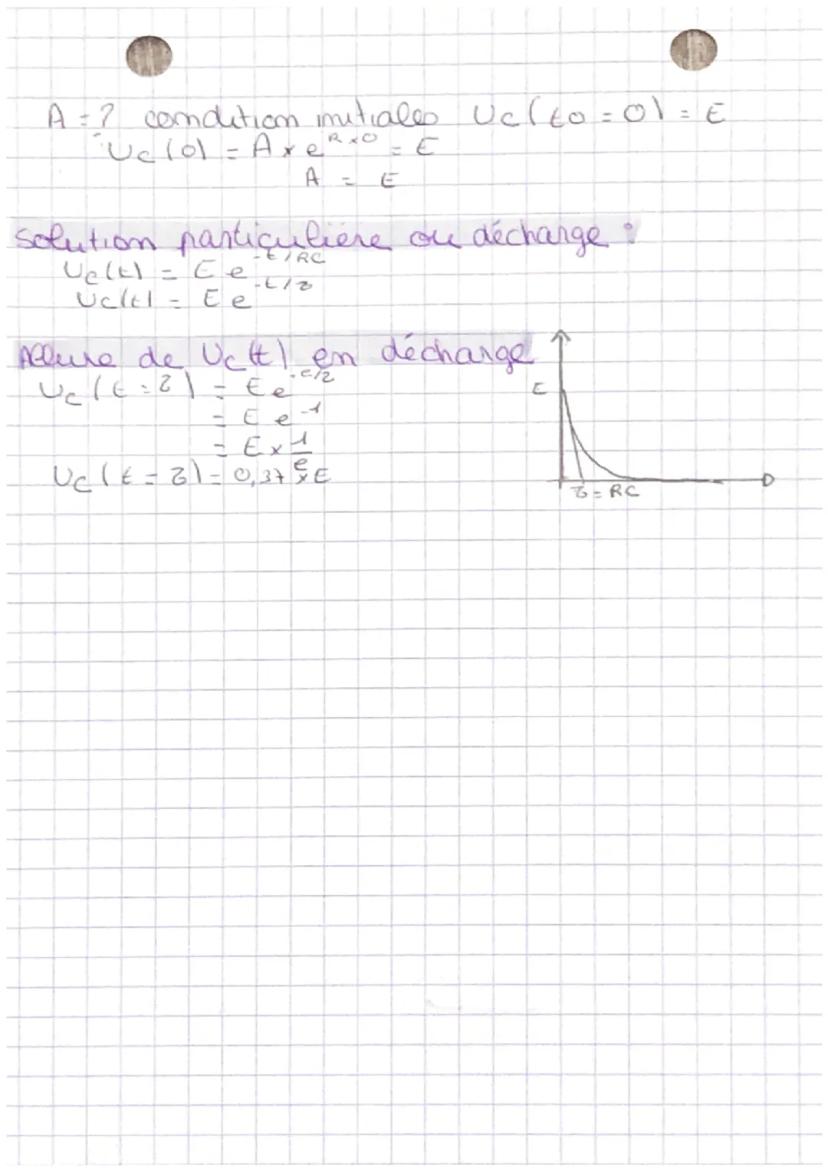 A = ? condition initiales Uc(t0 = 0) = E
Uc(0) = A x e^R x 0 = E
A = E
Solution particulière ou décharge :
Uc(t) = E e^-t/RC
Uc(t) = E e^-t/τ
Allure de Uc(t) en décharge
Uc(t = τ) = E e^-τ/τ
= E e^-1
= E x 1/e
Uc(t = τ) = 0,37 x E
E
τ = RC